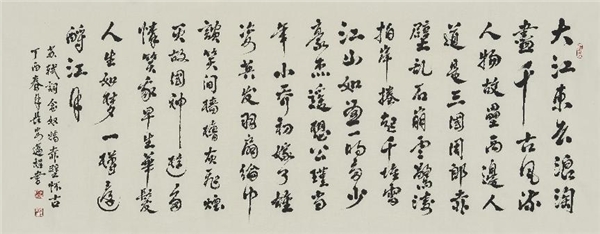 大江東去浪淘
盡千古風流
人物故壘西邊人
道是三國周郎赤
壁亂石崩雲驚濤
拍岸捲起千堆雪
江山如畫一時多少
豪傑遥想公瑾當
年小喬初嫁了雄
姿英发羽扇綸巾
談笑間檣櫓灰飛煙
灭故國神遊多
情笑我早生華髮
人生如梦一樽還
酹江月
苏軾詞念奴嬌赤壁懷古
丁酉春月長安書